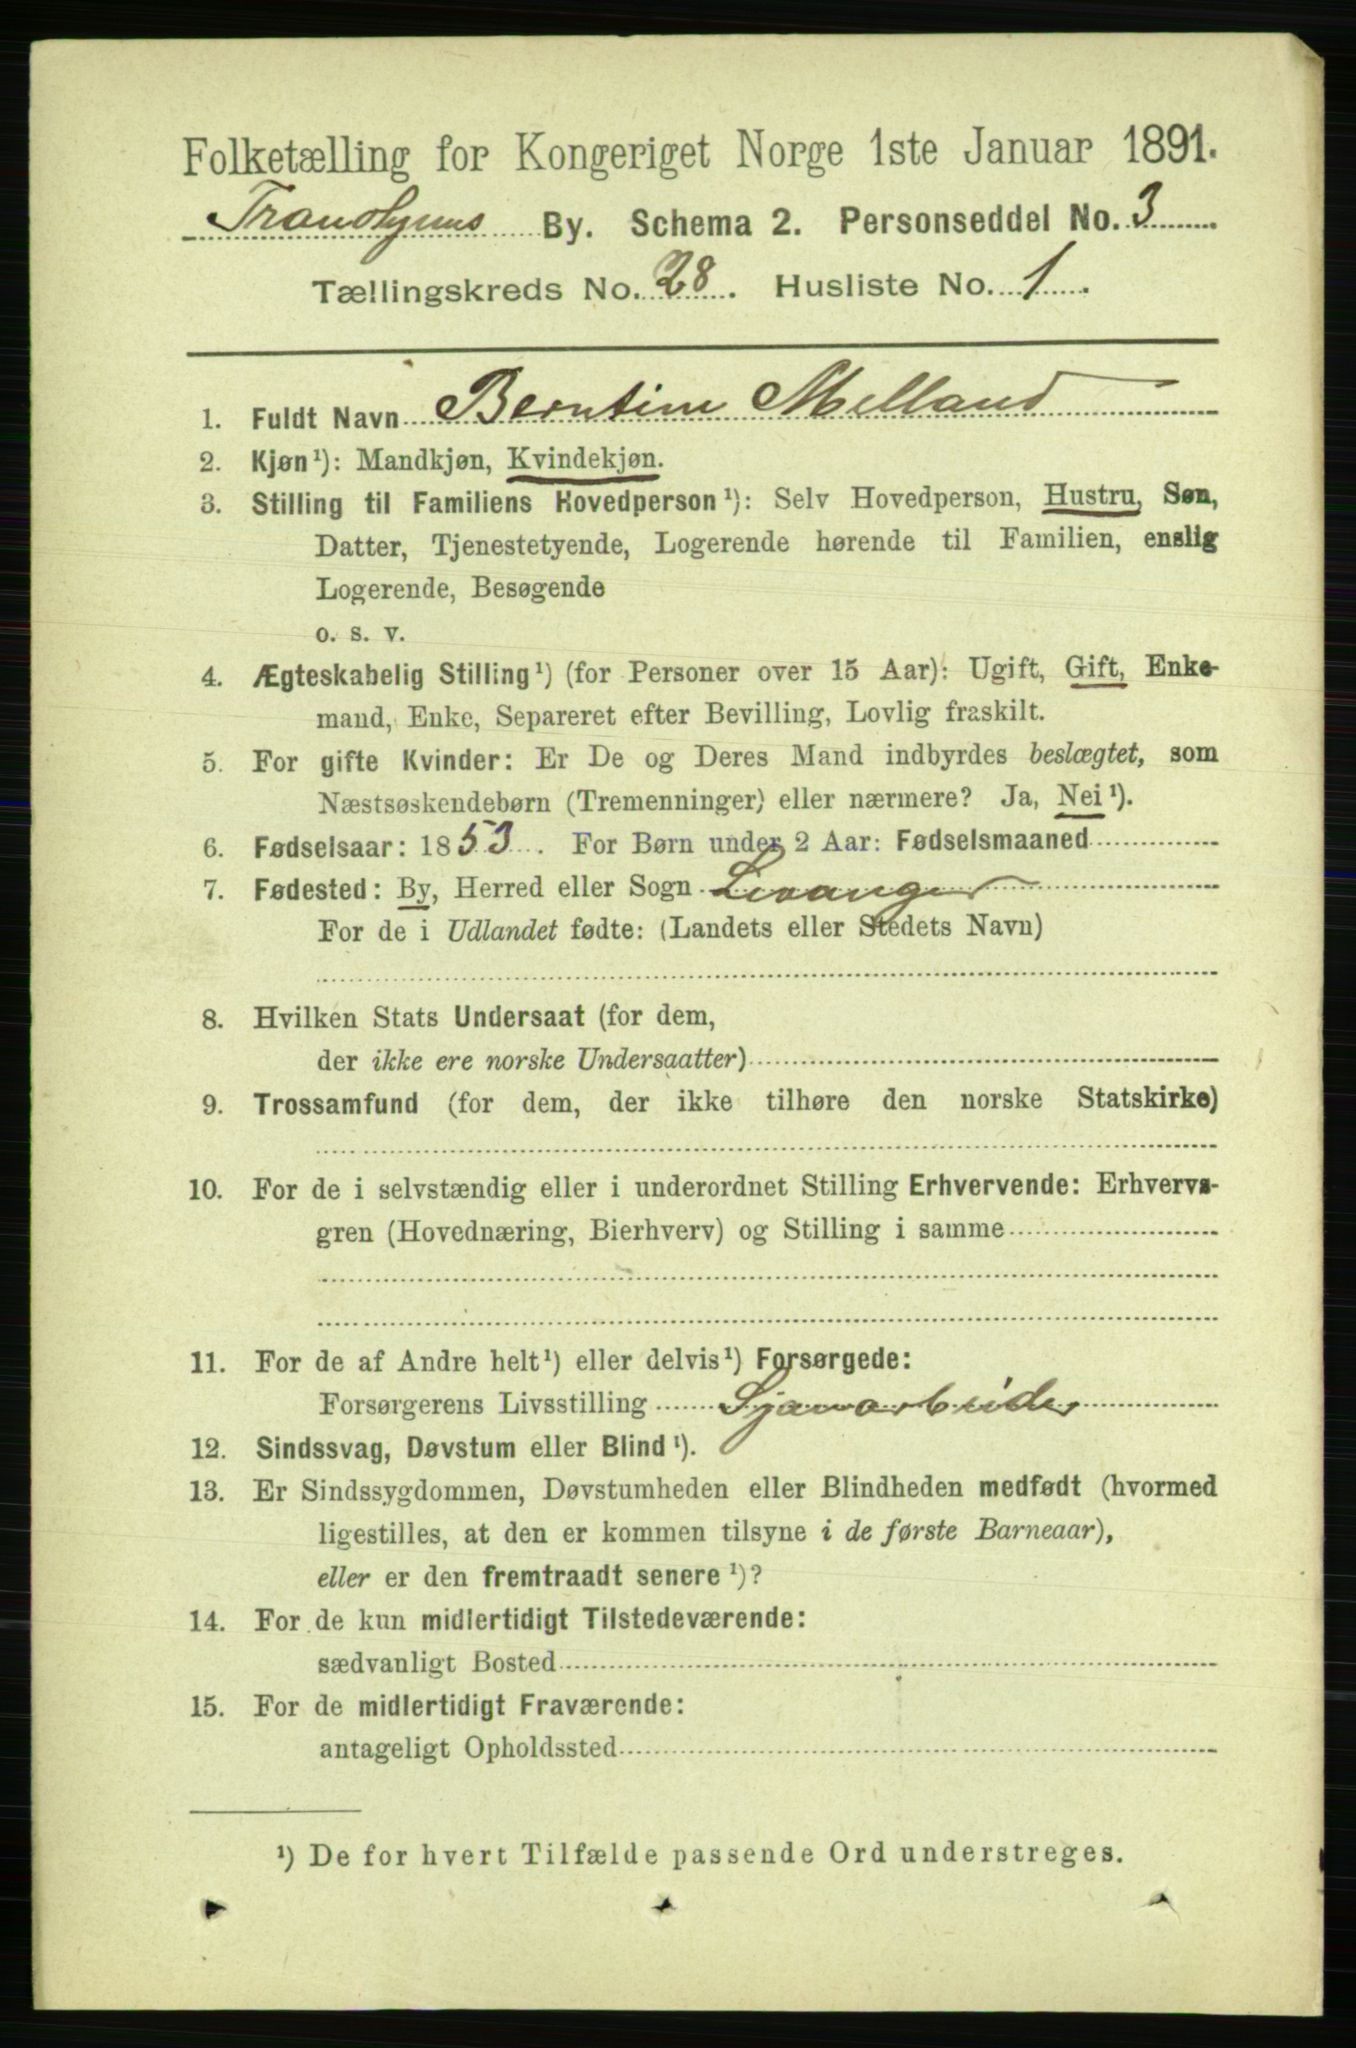 Folketælling for Kongeriget Norge 1ste Januar 1891.
Trondhjems By. Schema 2. Personseddel No. 3
Tællingskreds No. 28. Husliste No. 1.
1. Fuldt Navn Berntine Melland
2. Kjøn¹): Mandkjøn, Kvindekjøn.
3. Stilling til Familiens Hovedperson¹): Selv Hovedperson, Hustru, Søn,
Datter, Tjenestetyende, Logerende hørende til Familien, enslig
Logerende, Besøgende
o. s. v.
4. Ægteskabelig Stilling¹) (for Personer over 15 Aar): Ugift, Gift, Enke-
mand, Enke, Separeret efter Bevilling, Lovlig fraskilt.
5. For gifte Kvinder: Er De og Deres Mand indbyrdes beslægtet, som
Næstsøskendebørn (Tremenninger) eller nærmere? Ja, Nei¹).
6. Fødselsaar: 1853. For Børn under 2 Aar: Fødselsmaaned
7. Fødested: By, Herred eller Sogn Levanger
For de i Udlandet fødte: (Landets eller Stedets Navn)
8. Hvilken Stats Undersaat (for dem,
der ikke ere norske Undersaatter)
9. Trossamfund (for dem, der ikke tilhøre den norske Statskirke)
10. For de i selvstændig eller i underordnet Stilling Erhvervende: Erhvervs-
gren (Hovednæring, Bierhverv) og Stilling i samme
11. For de af Andre helt¹) eller delvis¹) Forsørgede:
Forsørgerens Livsstilling Sjauarbeider
12. Sindssvag, Døvstum eller Blind¹).
13. Er Sindssygdommen, Døvstumheden eller Blindheden medfødt (hvormed
ligestilles, at den er kommen tilsyne i de første Barneaar),
eller er den fremtraadt senere¹)?
14. For de kun midlertidigt Tilstedeværende:
sædvanligt Bosted
15. For de midlertidigt Fraværende:
antageligt Opholdssted
¹) De for hvert Tilfælde passende Ord understreges.